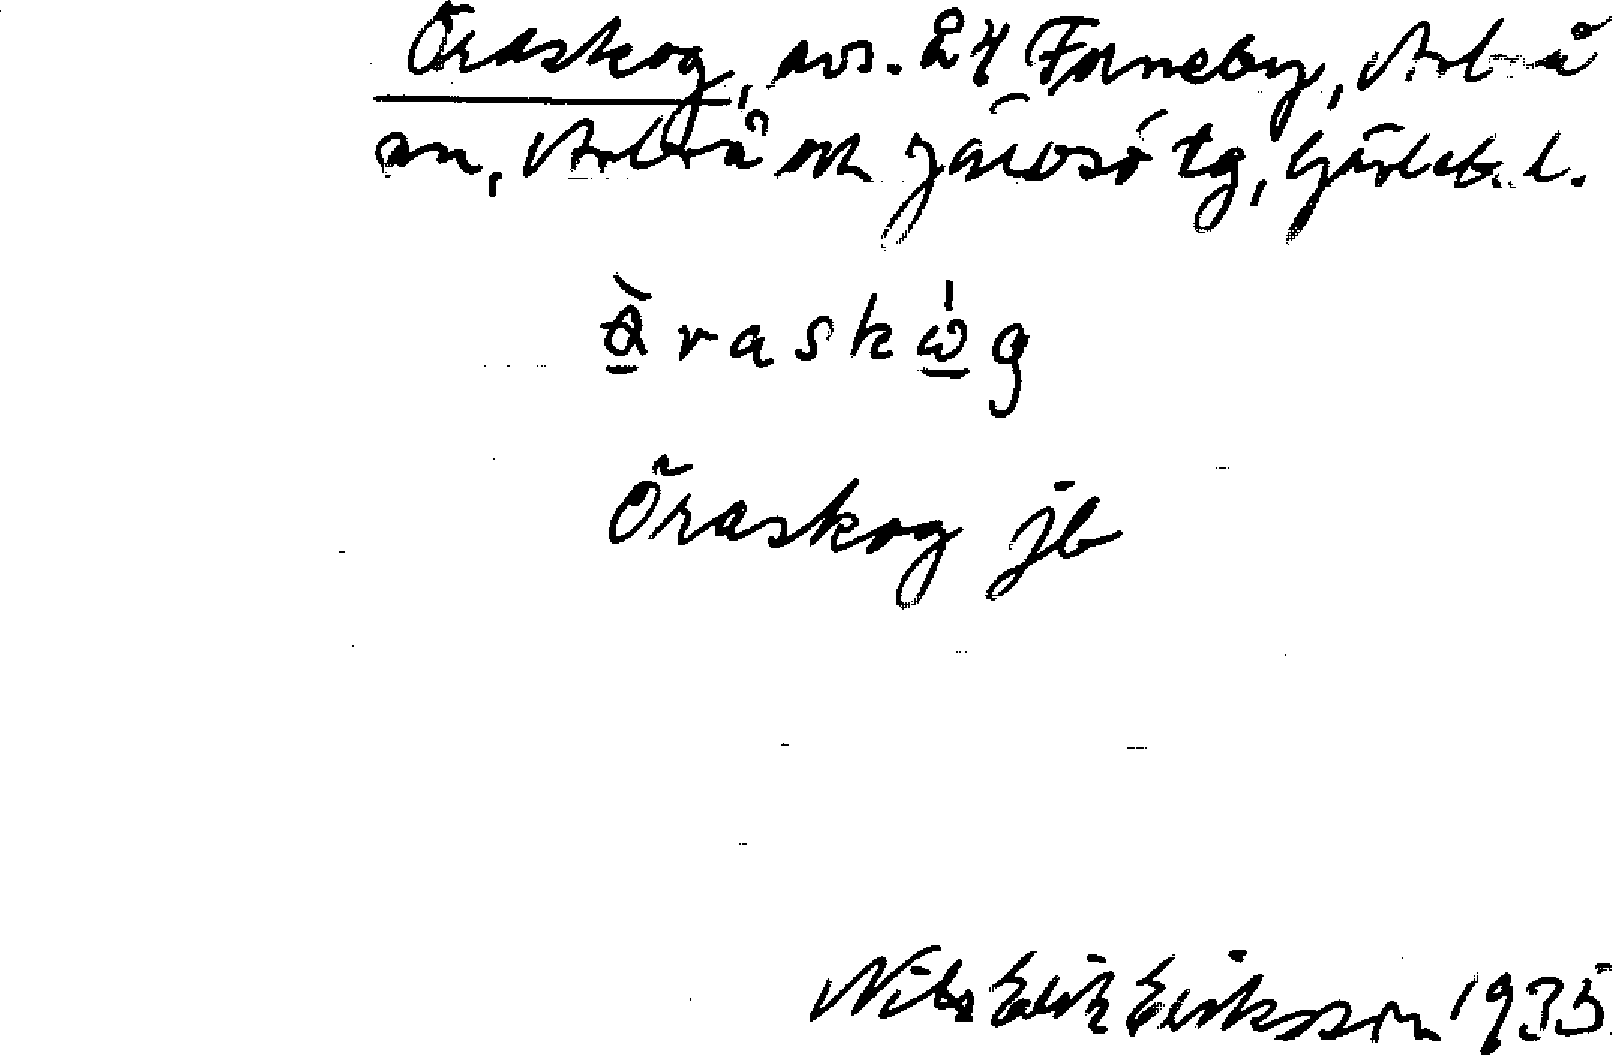 Öraskog, avs. 24 Forneby, Arbrå
sn, Arbrå och Järvsö tg, Gävleb. l.
raskωg
Öraskog jb
Nils Erik Eriksson 1935